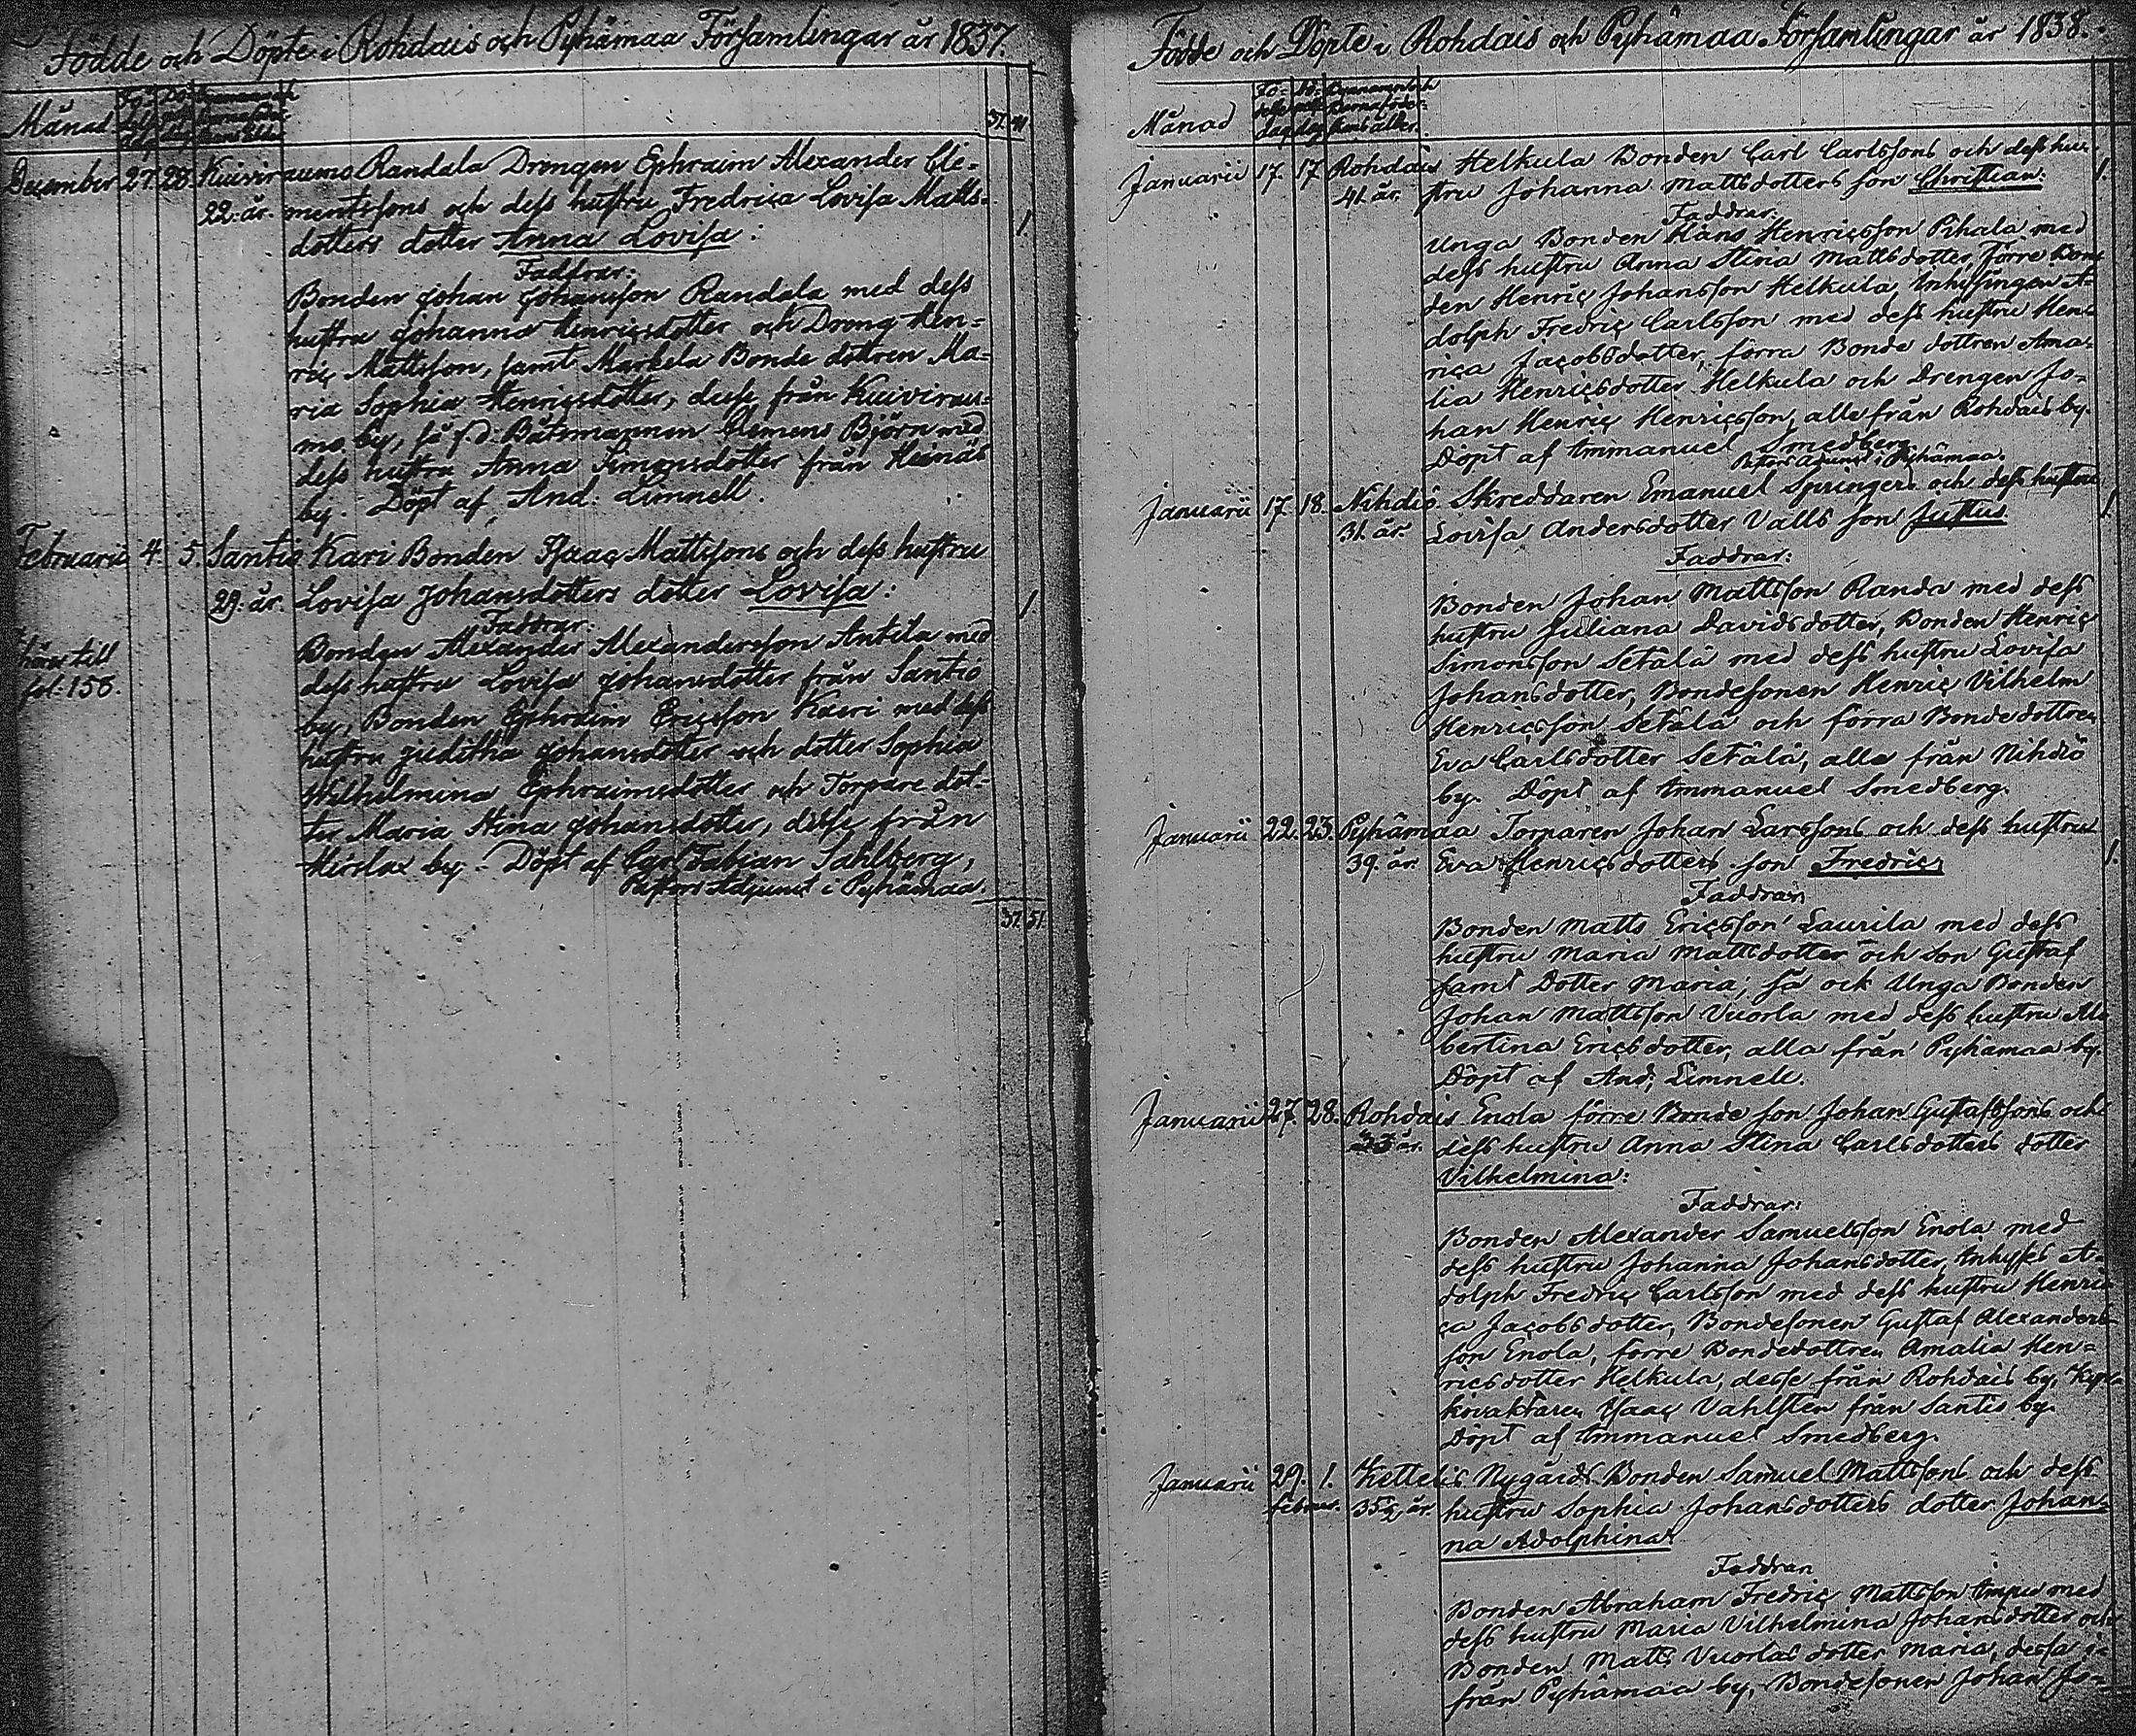 Födde och Döpte i Rohdais och Pyhämaa Församlingar år 1837.
Månad
37. 41
December 27. 28. Kuivirauma Randala Drengen Ephraim Alexander Cle=
22. år. mentssons och dess hustru Fredrica Lovisa Matts=
dotters dotter Anna Lovisa: 1
Faddrar:
Bonden Johan Johansson Randala med dess
hustru Johanna Henricsdotter och Dreng Hen=
ric Mattsson, samt Markela Bonde dottren Ma=
ria Sophia Henricsdotter, desse från Kuivirau=
mo by, så f.d. Båtsmannen Clemens Björn med
dess hustru Anna Simonsdotter från Heinäs
by. Döpt af And. Limnell.
Februarii 4. 5. Santio Kari Bonden Isaac Mattssons och dess hustru
29. år. Lovisa Johansdotters dotter Lovisa: 1
Faddrar:
hörer till
fol: 158.
Bonden Alexander Alexandersson Antila med
dess hustru Lovisa Johansdotter från Santio
by, Bonden Ephraim Ericsson Kaeri med dess
hustru Juditha Johansdotter och dotter Sophia
Wilhelmina Ephraimsdotter och Torpare dot=
ter Maria Stina Johansdotter, desse från
by. Döpt af Carl Fabian Sahlberg,
Pastors Adjunct i Pyhämaa.
37. 51.
Födde och Döpte i Rohdais och Pyhämaa Församlingar år 1838.
Månad
Januarii 17. 17 Rohdais Helkula Bonden Carl Carlssons och dess hu=
41. år. stru Johanna Mattsdotters son Christian: 1.
Faddrar:
Unga Bonden Hans Henricsson Pihala med
dess hustru Anna Stina Mattsdotter, förre Bon=
den Henric Johansson Helkula, Inhysingen A=
dolph Fredric Carlsson med dess hustru Hen=
rica Jacobsdotter, förra Bonde dottren Ama=
lia Henricsdotter Helkula och Drengen Jo=
han Henric Henricsson, alla från Rohdais by.
Döpt af Immanuel Smedberg
Pastors Adjunct i Pyhämaa.
Januarii 17. 18. Nihdiö Skreddaren Emanuel Springers och dess hustru
31. år. Lovisa Andersdotter Valls son Justus 1
Faddrar:
Bonden Johan Mattsson Randa med dess
hustru Juliana Davidsdotter, Bonden Henric
Simonsson Setälä med dess hustru Lovisa
Johansdotter, Bondesonen Henric Vilhelm
Henricsson Setälä och förra Bondedottren
Eva Carlsdotter Setälä, alla från Nihdiö
by. Döpt af Immanuel Smedberg.
Januarii 22. 23. Pyhämaa Torparen Johan Larssons och dess hustru
39. år. Eva Henricsdotters son Fredric 1.
Faddrar
Bonden Matts Ericsson Laurila med dess
hustru Maria Mattsdotter och son Gustaf
samt Dotter Maria; så ock Unga Bonden
Johan Mattsson Vuorla med dess hustru Al
bertina Ericsdotter, alla från Pyhämaa by.
Döpt af And. Limnell.
Januarii 27. 28. Rohdais Enola förre Bonde son Johan Gustafssons och
23 år. dess hustru Anna Stina Carlsdotters dotter
Vilhelmina:
Faddrar:
Bonden Alexander Samuelsson Enola med
dess hustru Johanna Johansdotter, Inhyses A=
dolph Fredric Carlsson med dess hustru Henri=
ca Jacobsdotter, Bondesonen Gustaf Alexanders
son Enola, förre Bondedottren Amalia Hen=
ricsdotter Helkula, desse från Rohdais by, Kyr
kovaktaren Isaac Vahlsten från Santio by.
Döpt af Immanuel Smedberg.
Januarii 29. 1. Kettelis Nygårds Bonden Samuel Mattssons och dess
februar. 35½ år. hustru Sophia Johansdotters dotter Johan=
na Adolphina:
Faddrar
Bonden Abraham Fredric Mattsson Impu med
dess hustru Maria Vilhelmina Johansdotter och
Bonden Matts Vuorlas dotter Maria, dessa
från Pyhämaa by, Bondesonen Johan Jo=